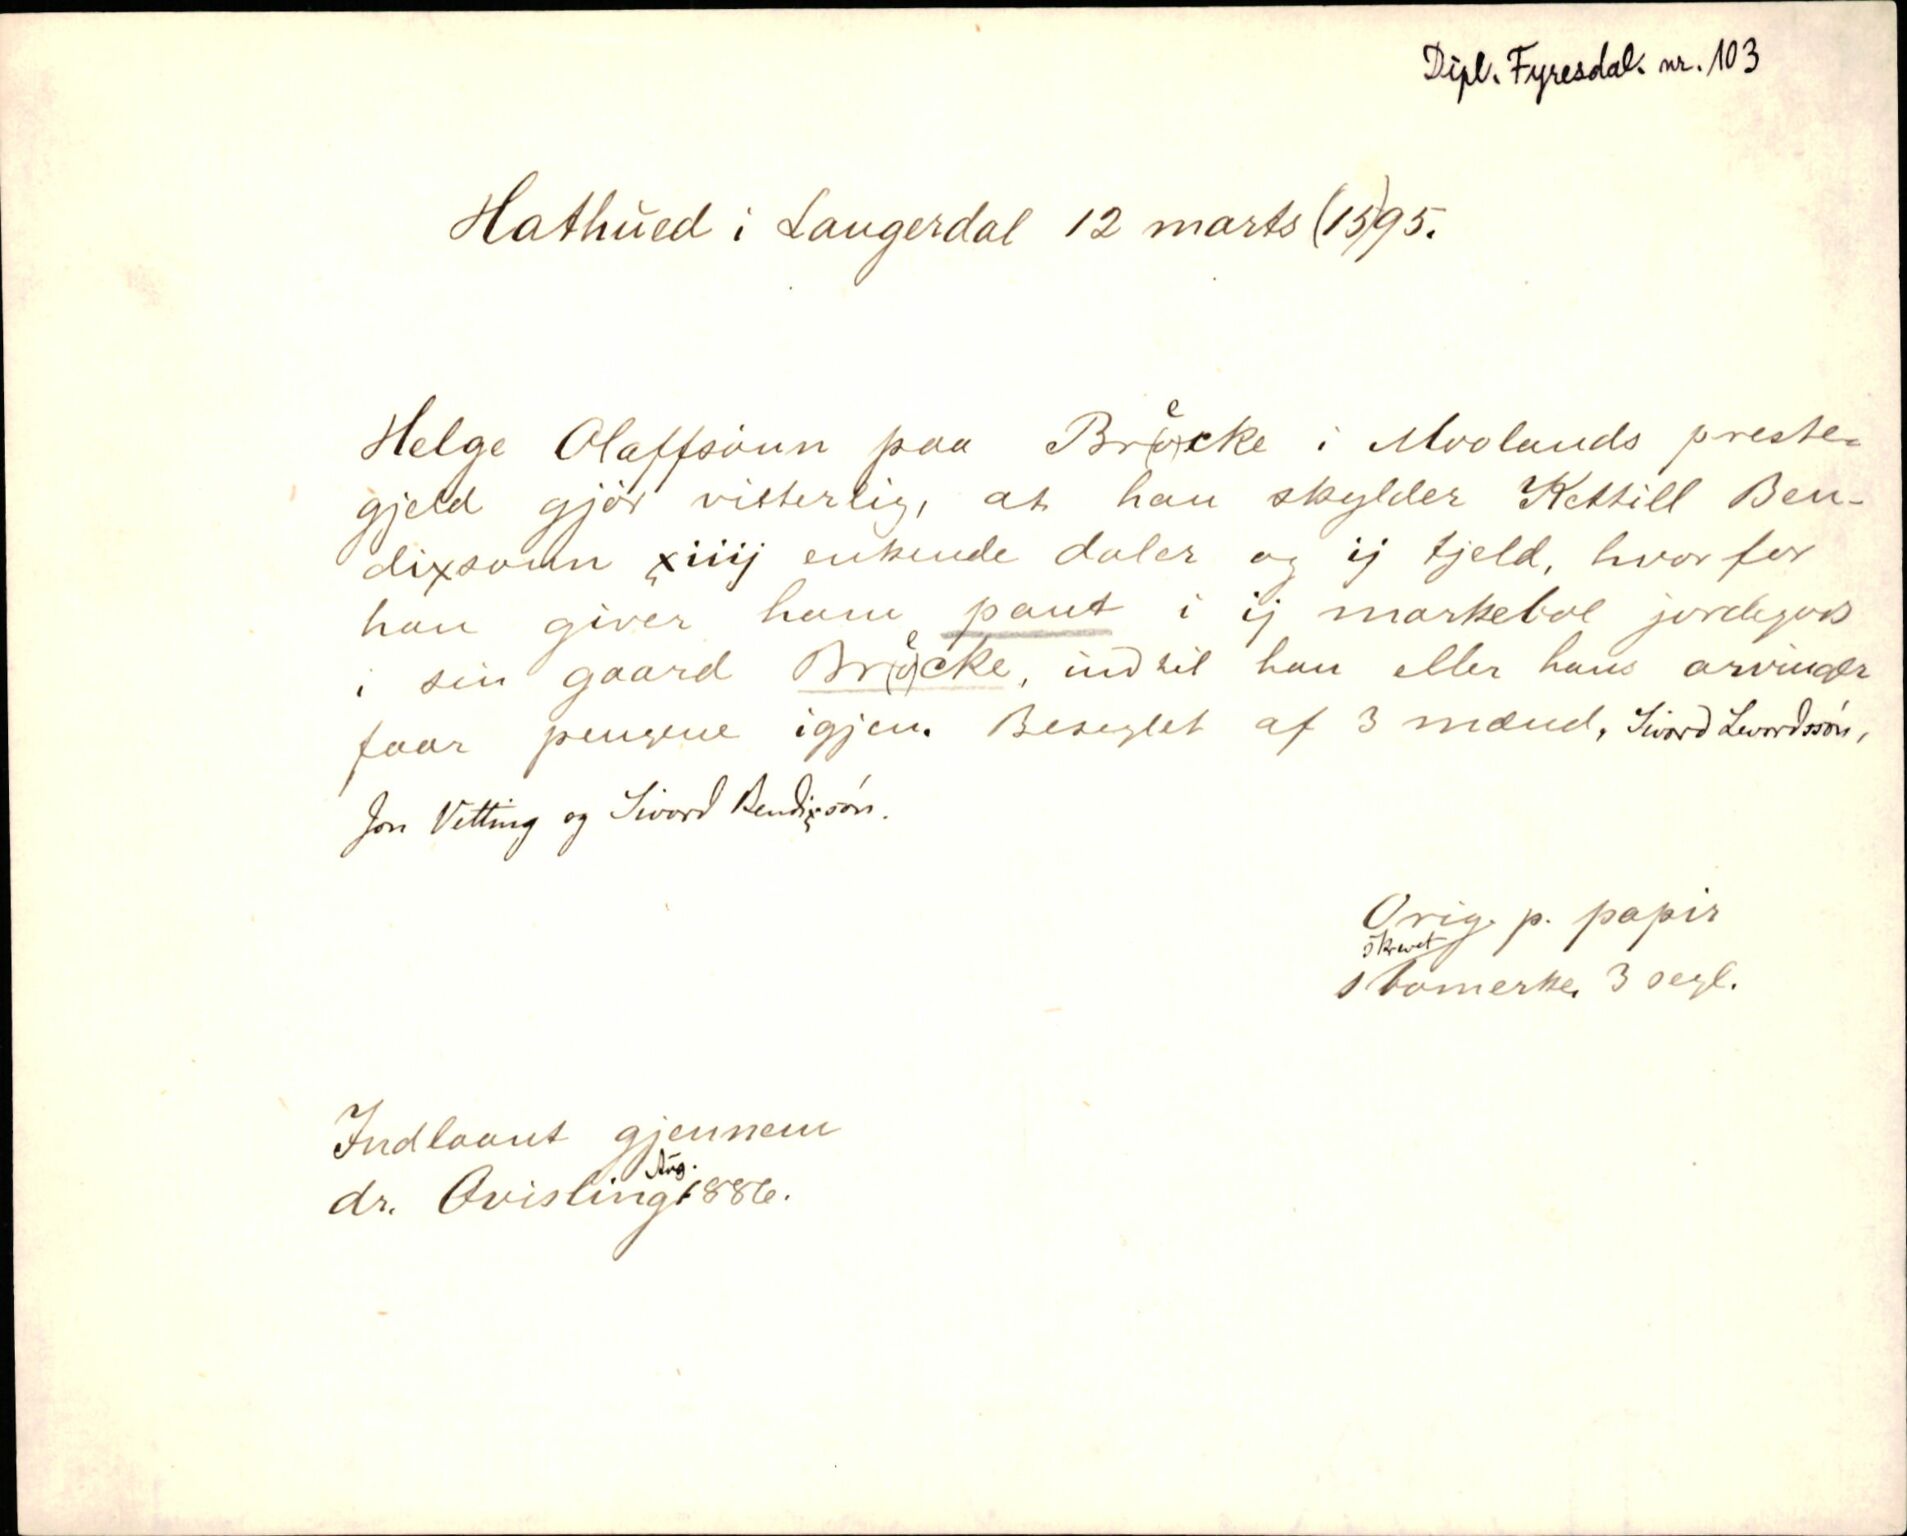 Dipl. Fyresdal. nr. 103
Hathŭed i Laugerdal 12 marts (15)95.
Helge Olaffsønn paa Br(ø)ecke i Moolands preste-
gjeld gjør vitterlig, at han skylder Kettill Ben-
dixsønn xiiij enkende daler og ij tjeld, hvorfor
han giver ham pant i ij markebol jordegods
i sin gaard Br(ø)ecke, indtil han eller hans arvinger
faar pengene igjen. Beseglet af 3 mænd, Sivord Levordssøn,
Jon Vetting og Sivord Bendixsøn.
Orig. p. papir
skrevet
1 bomerke, 3 segl.
Indlaant gjennem
dr. Qvisling Aŭg. 1886.